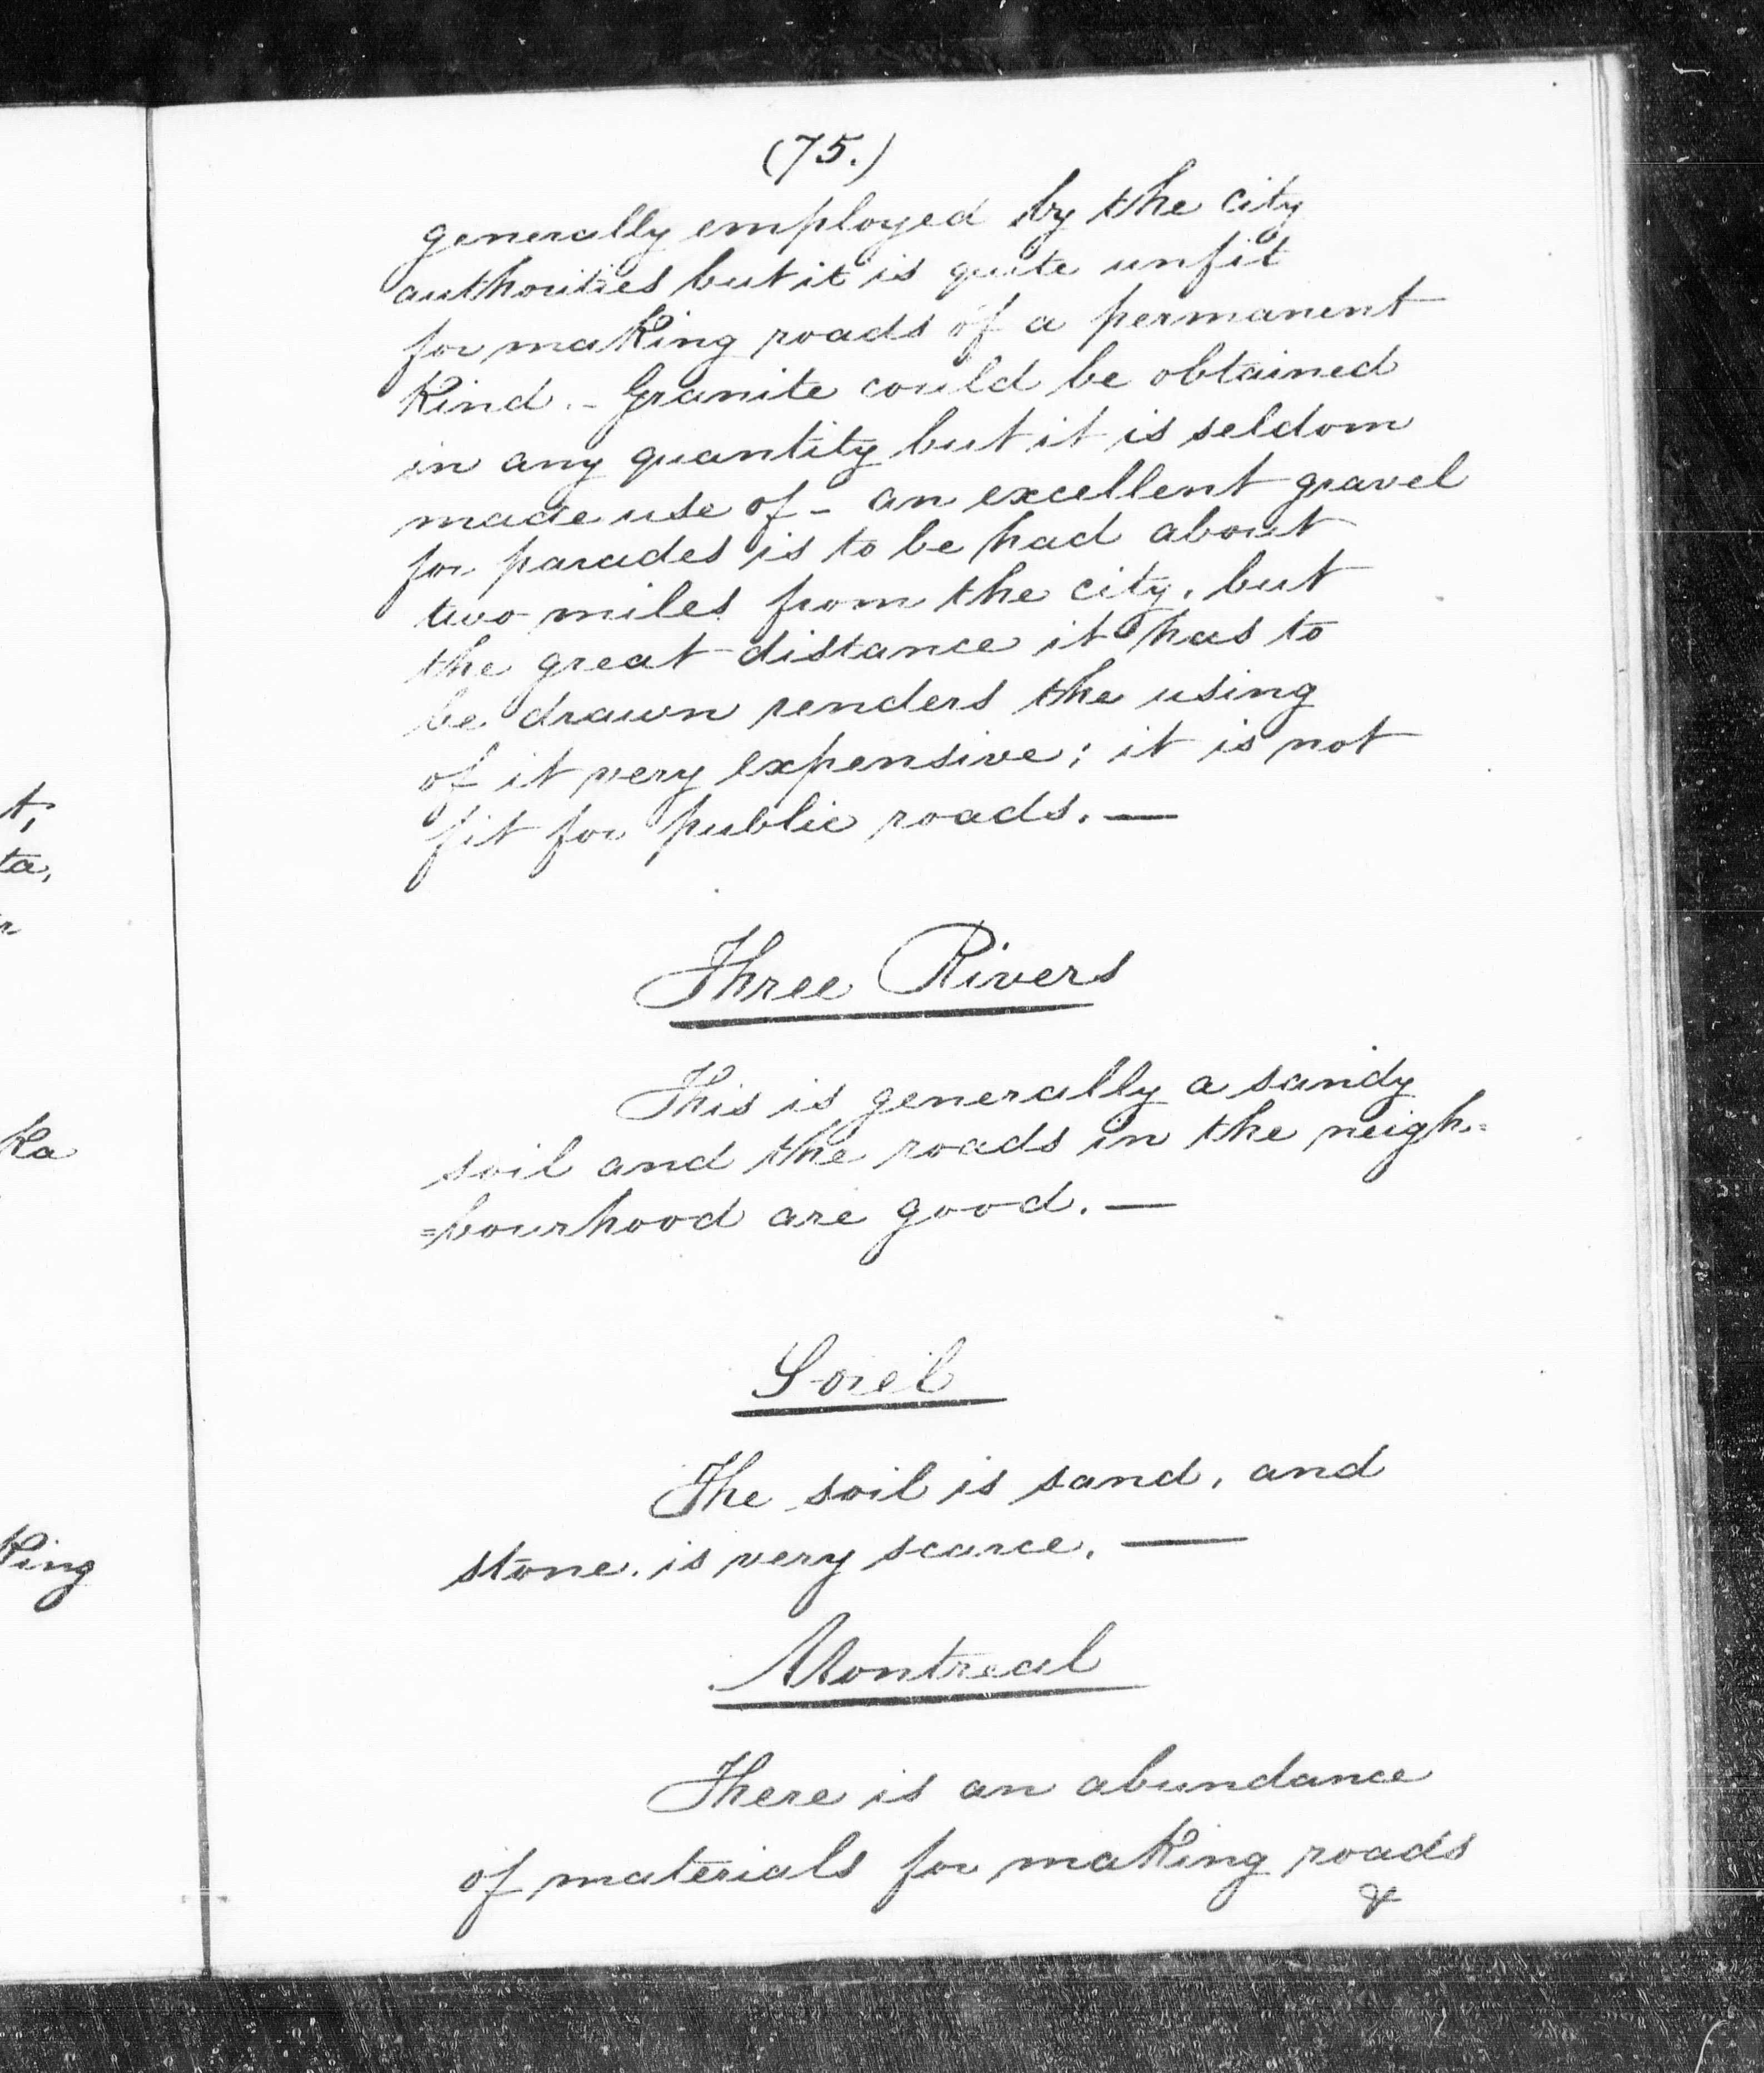 t,
ta,
Ka
King
(75.)
generally employed by the city
authorities but it is quite unfit
for making roads of a permanent
Kind. - Granite could be obtained
in any quantity but it is seldom
made use of - an excellent gravel
for parades is to be had about
two miles from the city, but
the great distance it has to
be drawn renders the using
of it very expensive; it is not
fit for public roads. —
Three Rivers
This is generally a sandy
soil and the roads in the neigh=
=bourhood are good. —
Sorel
The soil is sand, and
stone. is very scarce. —
Montreal
There is an abundance
of materials for making roads
&